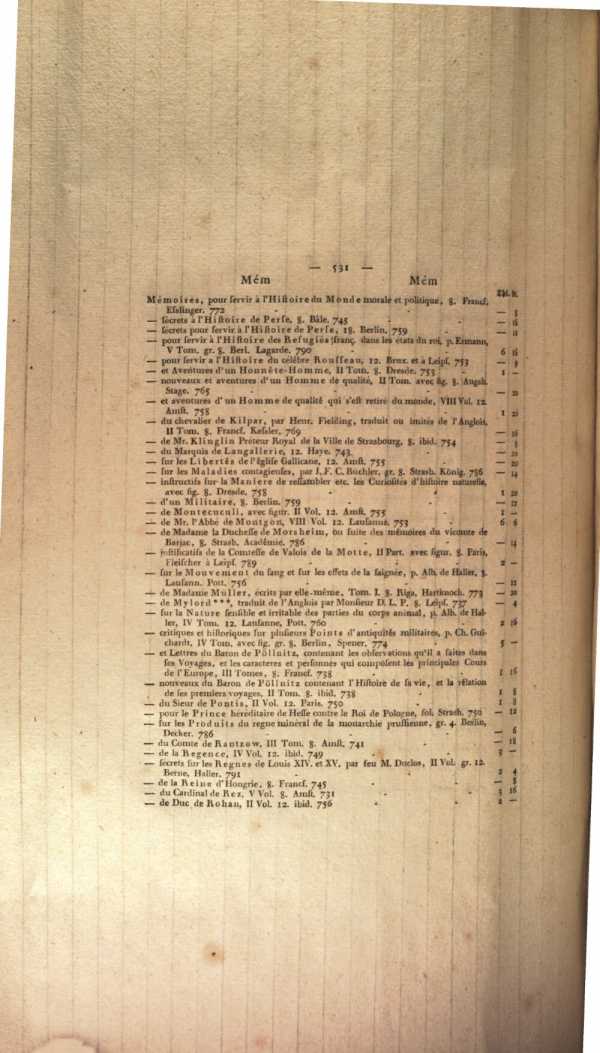 — 531 —
Mém Mém
Rthl. gr.
Mémoires, pour servir à l'Histoire du Monde morale et politique, 8. Francf.
Esslinger. 772 - - - — 8
— sécrets à l'Histoire de Perse, 8. Bâle. 745 - - — 16
— sécrets pour servir à l'Histoire de Perse, 18. Berlin. 759 - - — 18
— pour servir à l'Histoire des Refugiés franç. dans les états du roi, p. Ermann,
V Tom. gr. 8. Berl. Lagarde. 790 - - - 6 16
— pour servir à l'Histoire du célèbre Rousseau, 12. Brux. et à Leips. 753 - — 9
— et Aventures d'un Honnête-Homme, II Tom. 8. Dresde. 753 - - 1 —
— nouveaux et aventures d'un Homme de qualité, II Tom. avec fig. 8. Augsb.
Stage. 765 - - - - — 20
— et aventures d'un Homme de qualité qui s'est retiré du monde, VIII Vol. 12.
Amst. 758 - - - - 1 20
— du chevalier de Kilpar, par Henr. Fielding, traduit ou imités de l'Anglois,
II Tom. 8. Francf. Kessler. 769 - - - — 16
— de Mr. Klinglin Préteur Royal de la Ville de Strasbourg, 8. ibid. 754 - — 8
— du Marquis de Langallerie, 12. Haye. 743 - - — 20
— sur les Libertés de l'église Gallicane, 12. Amst. 755 - - — 20
— sur les Maladies contagieuses, par J. F. C. Büchler, gr. 8. Strasb. König. 786 - — 14
— instructifs sur la Maniere de rassambler etc. les Curiosités d'histoire naturelle,
avec fig. 8. Dresde. 758 - - - 1 20
— d'un Militaire, 8. Berlin. 759 - - - — 12
— de Montecuculi, avec figur. II Vol. 12. Amst. 755 - - 1 —
— de Mr. l'Abbé de Montgon, VIII Vol. 12. Lausanne. 753 - - 6 6
— de Madame la Duchesse de Morsheim, ou suite des mémoires du vicomte de
Barjac, 8. Strasb. Académie. 786 - - - — 14
— justificatifs de la Comtesse de Valois de la Motte, II Part. avec figur. 8. Paris,
Fleischer à Leips. 789 - - - 2 —
— sur le Mouvement du sang et sur les effets de la saignée, p. Alb. de Haller, 8.
Lausann. Pott. 756 - - - — 12
— de Madame Müller, écrits par elle-même, Tom. I. 8. Riga, Hartknoch. 773 — 20
— de Mylord ***, traduit de l'Anglois par Monsieur D. L. P. 8. Leips. 737 - — 4
— sur la Nature sensible et irritable des parties du corps animal, p. Alb. de Hal-
ler, IV Tom. 12. Lausanne, Pott. 760 - - 2 16
— critiques et historiques sur plusieurs Points d'antiquités militaires, p. Ch. Gui-
chardt, IV Tom. avec fig. gr. 8. Berlin, Spener. 774 - - 5 —
— et Lettres du Baron de Pöllnitz, contenant les observations qu'il a faites dans
ses Voyages, et les caracteres et personnes qui composent les principales Cours
de l'Europe, III Tomes, 8. Francf. 738 - - 1 16
— nouveaux du Baron de Pöllnitz contenant l'Histoire de sa vie, et la rélation
de ses premiers voyages, II Tom. 8. ibid. 738 - - 1 8
— du Sieur de Pontis, II Vol. 12. Paris. 750 - - 1 8
— pour le Prince héréditaire de Hesse contre le Roi de Pologne, fol. Strasb. 750 — 12
— sur les Produits du regne minéral de la monarchie prussienne, gr. 4. Berlin,
Decker. 786 - - - - — 6
— du Comte de Rantzow, III Tom. 8. Amst. 741 - - — 18
— de la Regence, IV Vol. 12. ibid. 749 - - 3 —
— sécrets sur les Regnes de Louis XIV. et XV. par feu M. Duclos, II Vol. gr. 12.
Berne, Haller. 791 - - - 2 4
— de la Reine d'Hongrie, 8. Francf. 745 - - — 8
— du Cardinal de Rez, V Vol. 8. Amst. 731 - - 3 16
— de Duc de Rohan, II Vol. 12. ibid. 756 - - 2 —